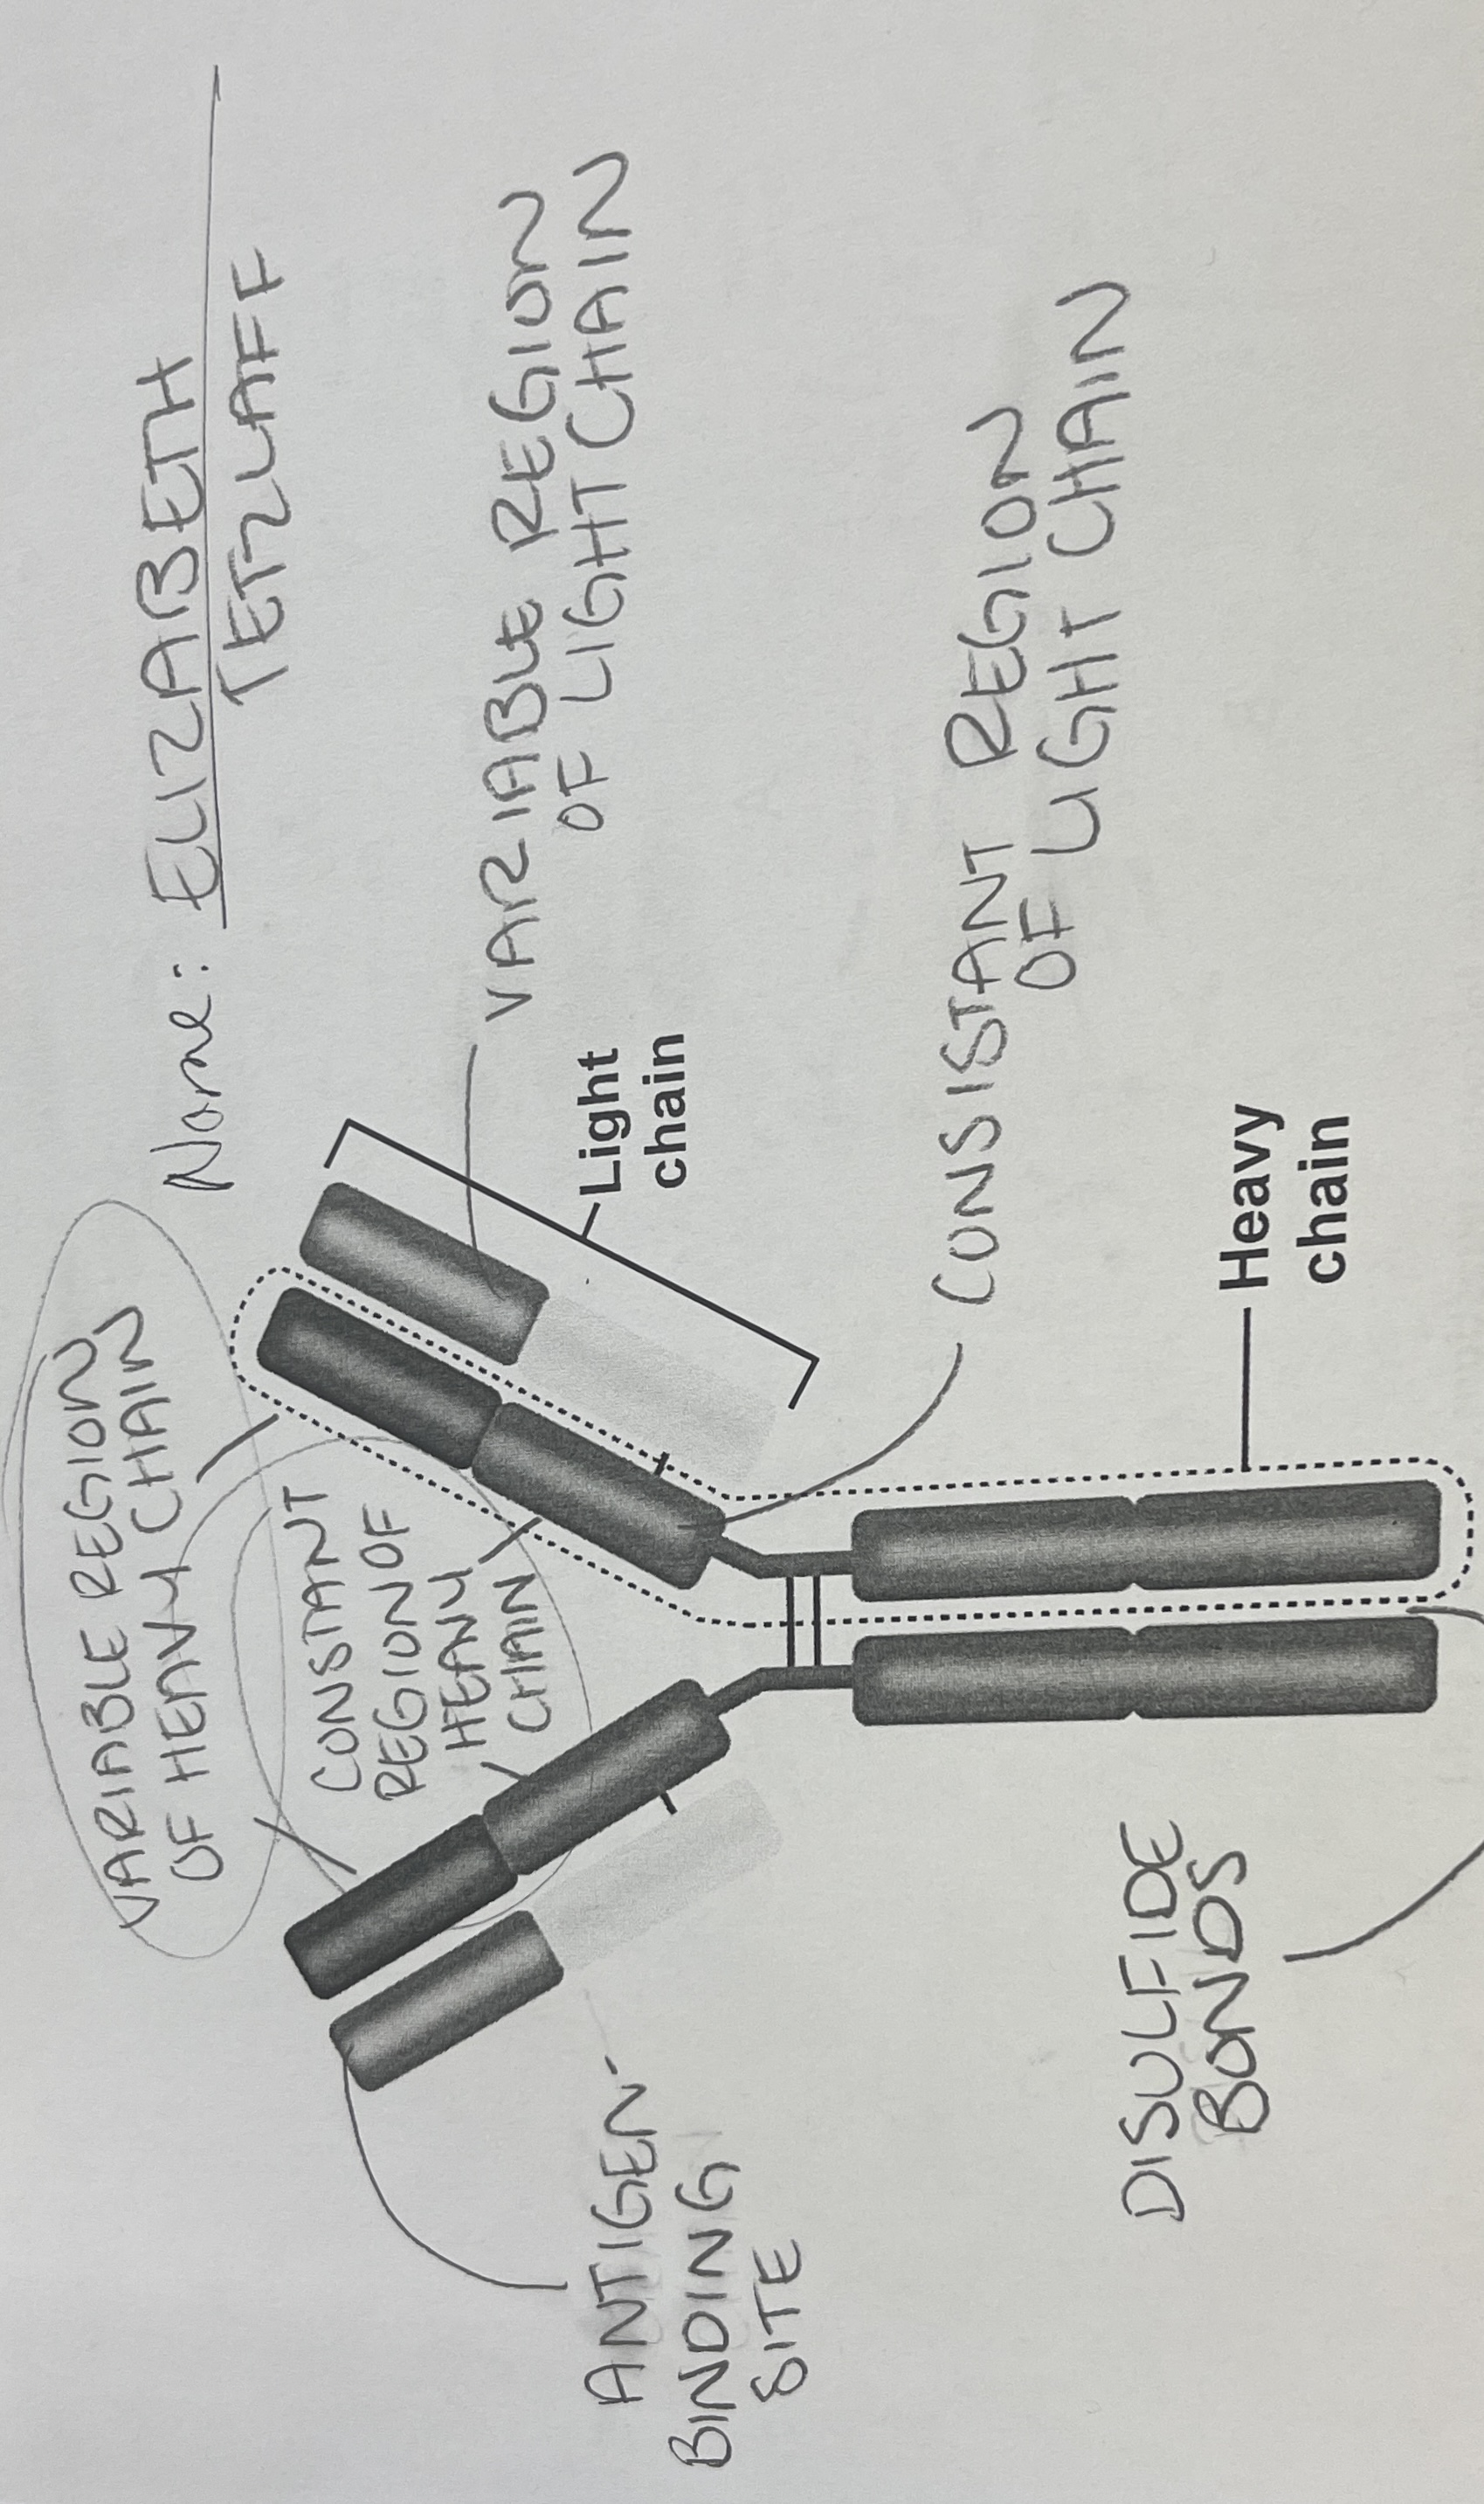 Name: ELIZABETH
TETZLAFF
VARIABLE REGION
OF HEAVY CHAIN
CONSTANT
REGION OF
HEAVY
CHAIN
VARIABLE REGION
OF LIGHT CHAIN
Light
chain
CONSISTANT REGION
OF LIGHT CHAIN
Heavy
chain
ANTIGEN-
BINDING
SITE
DISULFIDE
BONDS